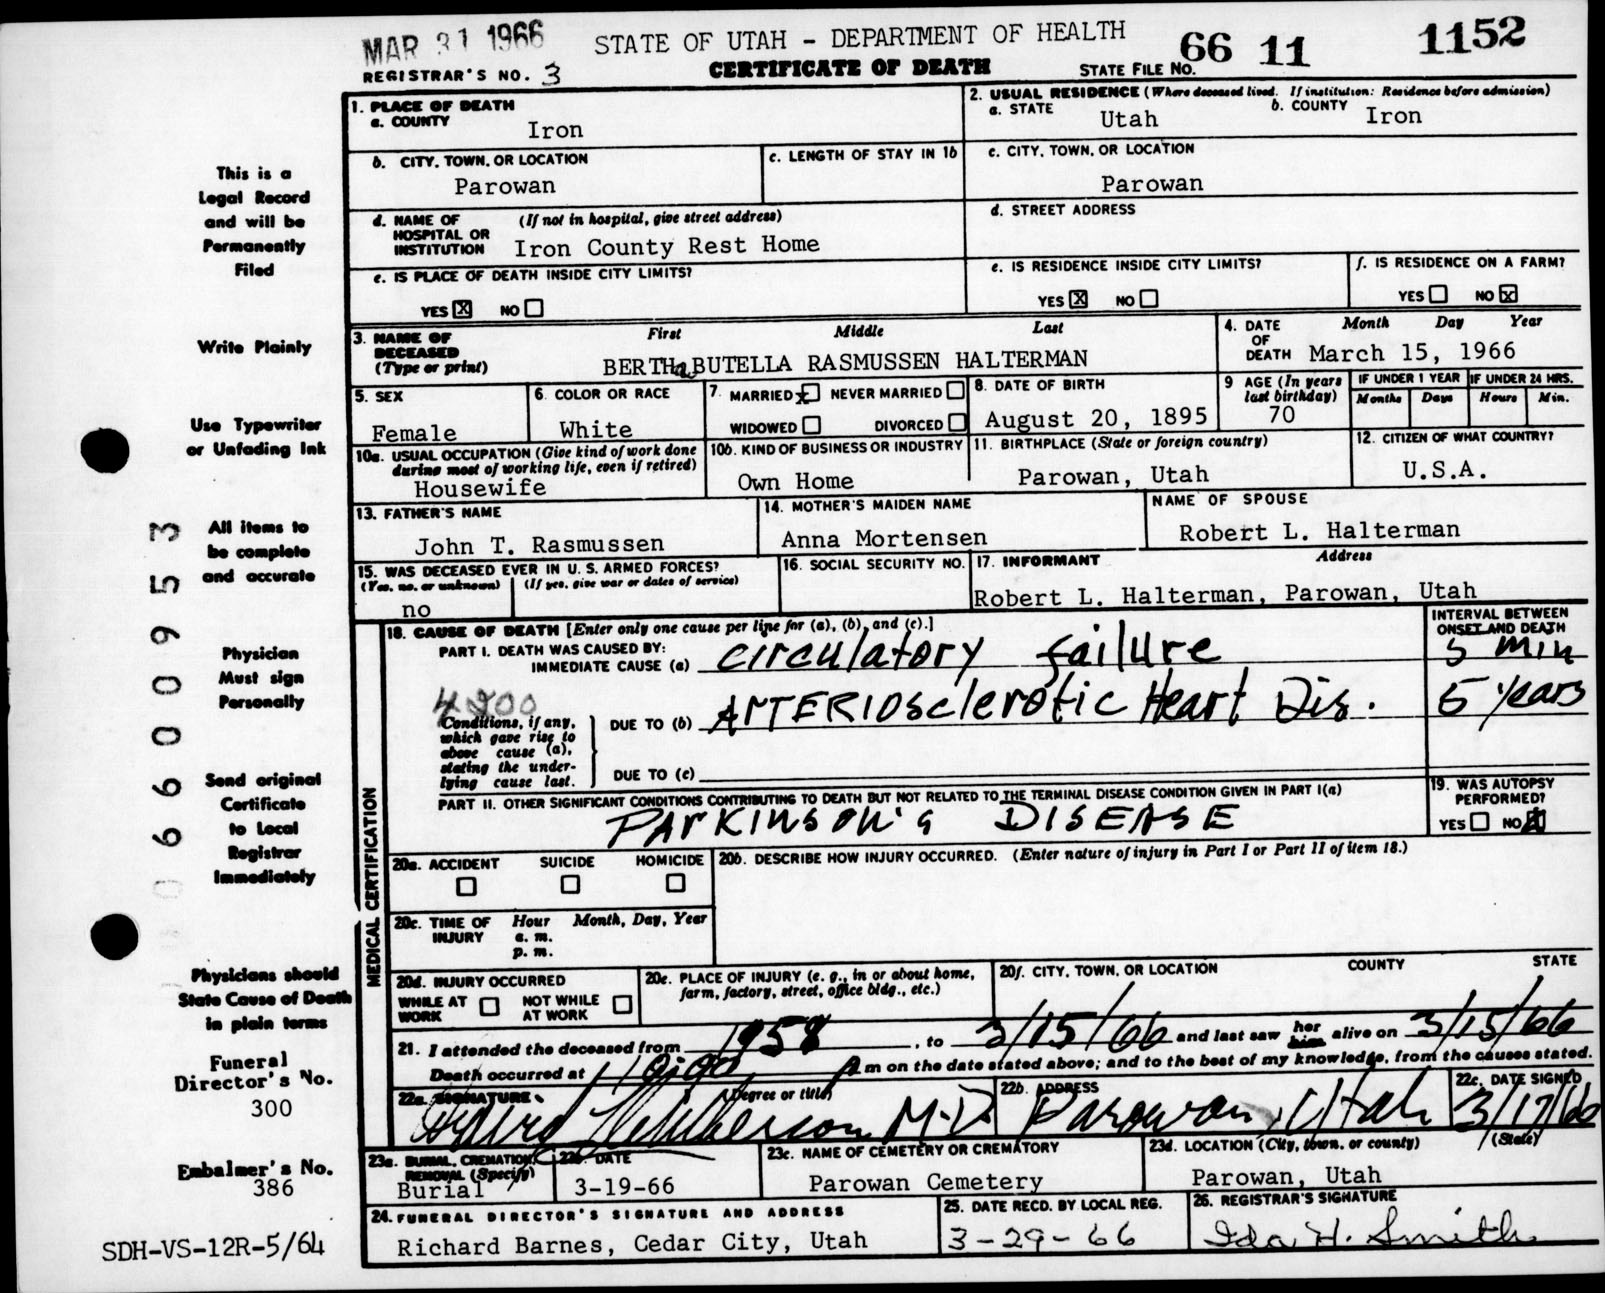 MAR 31 1966
STATE OF UTAH - DEPARTMENT OF HEALTH
66 11 1152
REGISTRAR'S NO. 3
CERTIFICATE OF DEATH
STATE FILE NO.
1. PLACE OF DEATH
a. COUNTY
Iron
2. USUAL RESIDENCE (Where deceased lived. If institution: Residence before admission)
a. STATE
Utah
b. COUNTY
Iron
b. CITY, TOWN, OR LOCATION
Parowan
c. LENGTH OF STAY IN 1b
c. CITY, TOWN, OR LOCATION
Parowan
d. NAME OF HOSPITAL OR INSTITUTION
(If not in hospital, give street address)
Iron County Rest Home
d. STREET ADDRESS
e. IS PLACE OF DEATH INSIDE CITY LIMITS?
YES X NO
e. IS RESIDENCE INSIDE CITY LIMITS?
YES X NO
f. IS RESIDENCE ON A FARM?
YES NO X
3. NAME OF DECEASED
(Type or print)
First Middle Last
BERTHa BUTELLA RASMUSSEN HALTERMAN
4. DATE OF DEATH
Month Day Year
March 15, 1966
5. SEX
Female
6. COLOR OR RACE
White
7. MARRIED X NEVER MARRIED
WIDOWED DIVORCED
8. DATE OF BIRTH
August 20, 1895
9 AGE (In years last birthday)
70
IF UNDER 1 YEAR
Months Days
IF UNDER 24 HRS.
Hours Min.
10a. USUAL OCCUPATION (Give kind of work done during most of working life, even if retired)
Housewife
10b. KIND OF BUSINESS OR INDUSTRY
Own Home
11. BIRTHPLACE (State or foreign country)
Parowan, Utah
12. CITIZEN OF WHAT COUNTRY?
U.S.A.
13. FATHER'S NAME
John T. Rasmussen
14. MOTHER'S MAIDEN NAME
Anna Mortensen
NAME OF SPOUSE
Robert L. Halterman
15. WAS DECEASED EVER IN U. S. ARMED FORCES?
(Yes, no, or unknown) (If yes, give war or dates of service)
no
16. SOCIAL SECURITY NO.
17. INFORMANT
Address
Robert L. Halterman, Parowan, Utah
MEDICAL CERTIFICATION
18. CAUSE OF DEATH [Enter only one cause per line for (a), (b), and (c).]
INTERVAL BETWEEN ONSET AND DEATH
PART I. DEATH WAS CAUSED BY:
IMMEDIATE CAUSE (a) circulatory failure
5 min
4200
Conditions, if any, which gave rise to above cause (a), stating the underlying cause last.
DUE TO (b) ARTERIOsclerotic Heart Dis.
5 years
DUE TO (c)
PART II. OTHER SIGNIFICANT CONDITIONS CONTRIBUTING TO DEATH BUT NOT RELATED TO THE TERMINAL DISEASE CONDITION GIVEN IN PART I(a)
PARKINSON'S DISEASE
19. WAS AUTOPSY PERFORMED?
YES NO X
20a. ACCIDENT SUICIDE HOMICIDE
20b. DESCRIBE HOW INJURY OCCURRED. (Enter nature of injury in Part I or Part II of item 18.)
20c. TIME OF INJURY
Hour Month, Day, Year
a. m.
p. m.
20d. INJURY OCCURRED
WHILE AT WORK NOT WHILE AT WORK
20e. PLACE OF INJURY (e. g., in or about home, farm, factory, street, office bldg., etc.)
20f. CITY, TOWN, OR LOCATION COUNTY STATE
21. I attended the deceased from 1958, to 3/15/66 and last saw her him alive on 3/15/66
Death occurred at m on the date stated above; and to the best of my knowledge, from the causes stated.
22a. SIGNATURE (Degree or title)
M.D.
22b. ADDRESS
Parowan, Utah
22c. DATE SIGNED
3/17/66
23a. BURIAL, CREMATION, REMOVAL (Specify)
Burial
23b. DATE
3-19-66
23c. NAME OF CEMETERY OR CREMATORY
Parowan Cemetery
23d. LOCATION (City, town, or county) (State)
Parowan, Utah
24. FUNERAL DIRECTOR'S SIGNATURE AND ADDRESS
Richard Barnes, Cedar City, Utah
25. DATE RECD. BY LOCAL REG.
3-29-66
26. REGISTRAR'S SIGNATURE
Ida H. Smith
This is a
Legal Record
and will be
Permanently
Filed
Write Plainly
Use Typewriter
or Unfading Ink
All items to
be complete
and accurate
Physician
Must sign
Personally
Send original
Certificate
to Local
Registrar
Immediately
Physicians should
State Cause of Death
in plain terms
Funeral
Director's No.
300
Embalmer's No.
386
SDH-VS-12R-5/64
06600953